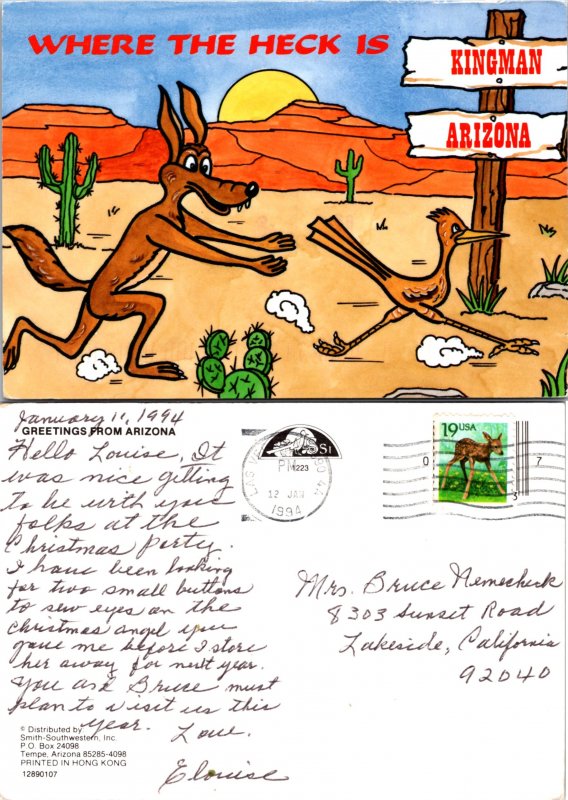 WHERE THE HECK IS
KINGMAN
ARIZONA
January 11, 1994
GREETINGS FROM ARIZONA
Hello Louise, It
was nice getting
to be with you
folks at the
Christmas Party.
I have been looking
for two small buttons
to sew eyes on the
Christmas angel you
gave me before I store
her away for next year.
You and Bruce must
plan to visit us this
year. Love.
Elouise
© Distributed by
Smith-Southwestern, Inc.
P.O. Box 24098
Tempe, Arizona 85285-4098
PRINTED IN HONG KONG
12890107
PM
12 JAN
1994
19 USA
Mrs. Bruce Nemechek
8303 Sunset Road
Lakeside, California
92040